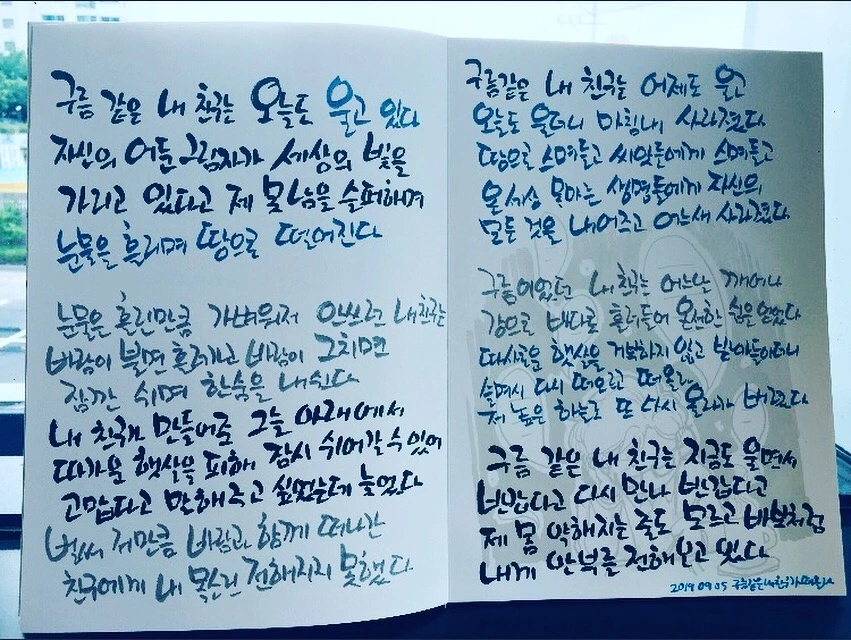 구름 같은 내 친구는 오늘도 울고 있다
자신의 어두운 그림자가 세상의 빛을
가리고 있다고 제 못남을 슬퍼하며
눈물을 흘리며 땅으로 떨어진다
눈물을 흘린만큼 가벼워져 안쓰런 내 친구는
바람이 불면 흘러가고 바람이 그치면
잠깐 쉬며 한숨을 내쉰다
내 친구가 만들어준 그늘 아래에서
따가운 햇살을 피해 잠시 쉬어갈 수 있어
고맙다고 말해주고 싶었는데 늦었다
벌써 저만큼 바람과 함께 떠나간
친구에게 내 목소린 전해지지 못했다
구름같은 내 친구는 어제도 울고
오늘도 울더니 마침내 사라졌다
땅으로 스며들고 씨앗들에게 스며들고
온세상 목마른 생명들에게 자신의
모든 것을 내어주고 어느새 사라졌다
구름이었던 내 친구는 어느날 깨어나
강으로 바다로 흘러들어 온전한 쉼을 얻었다
따사로운 햇살을 거부하지 않고 받아들이더니
슬며시 다시 떠오르고 떠올라
저 높은 하늘로 또 다시 올라가 버렸다
구름 같은 내 친구는 지금도 울면서
반갑다고 다시 만나 반갑다고
제 몸 약해지는 줄도 모르고 바보처럼
내게 안부를 전해오고 있다
2019 09 05 구름같은 내 친구가